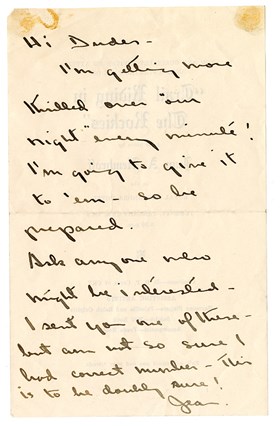 Hi Dudes -
I'm getting more
thrilled over "our
night" every minute!
I'm going to give it
to 'em - so be
prepared.
Ask anyone who
might be interested -
I sent you one of these -
but am not so sure I
had correct number - This
is to be doubly sure!
Jean.
"Trail Riding in
The Rockies"